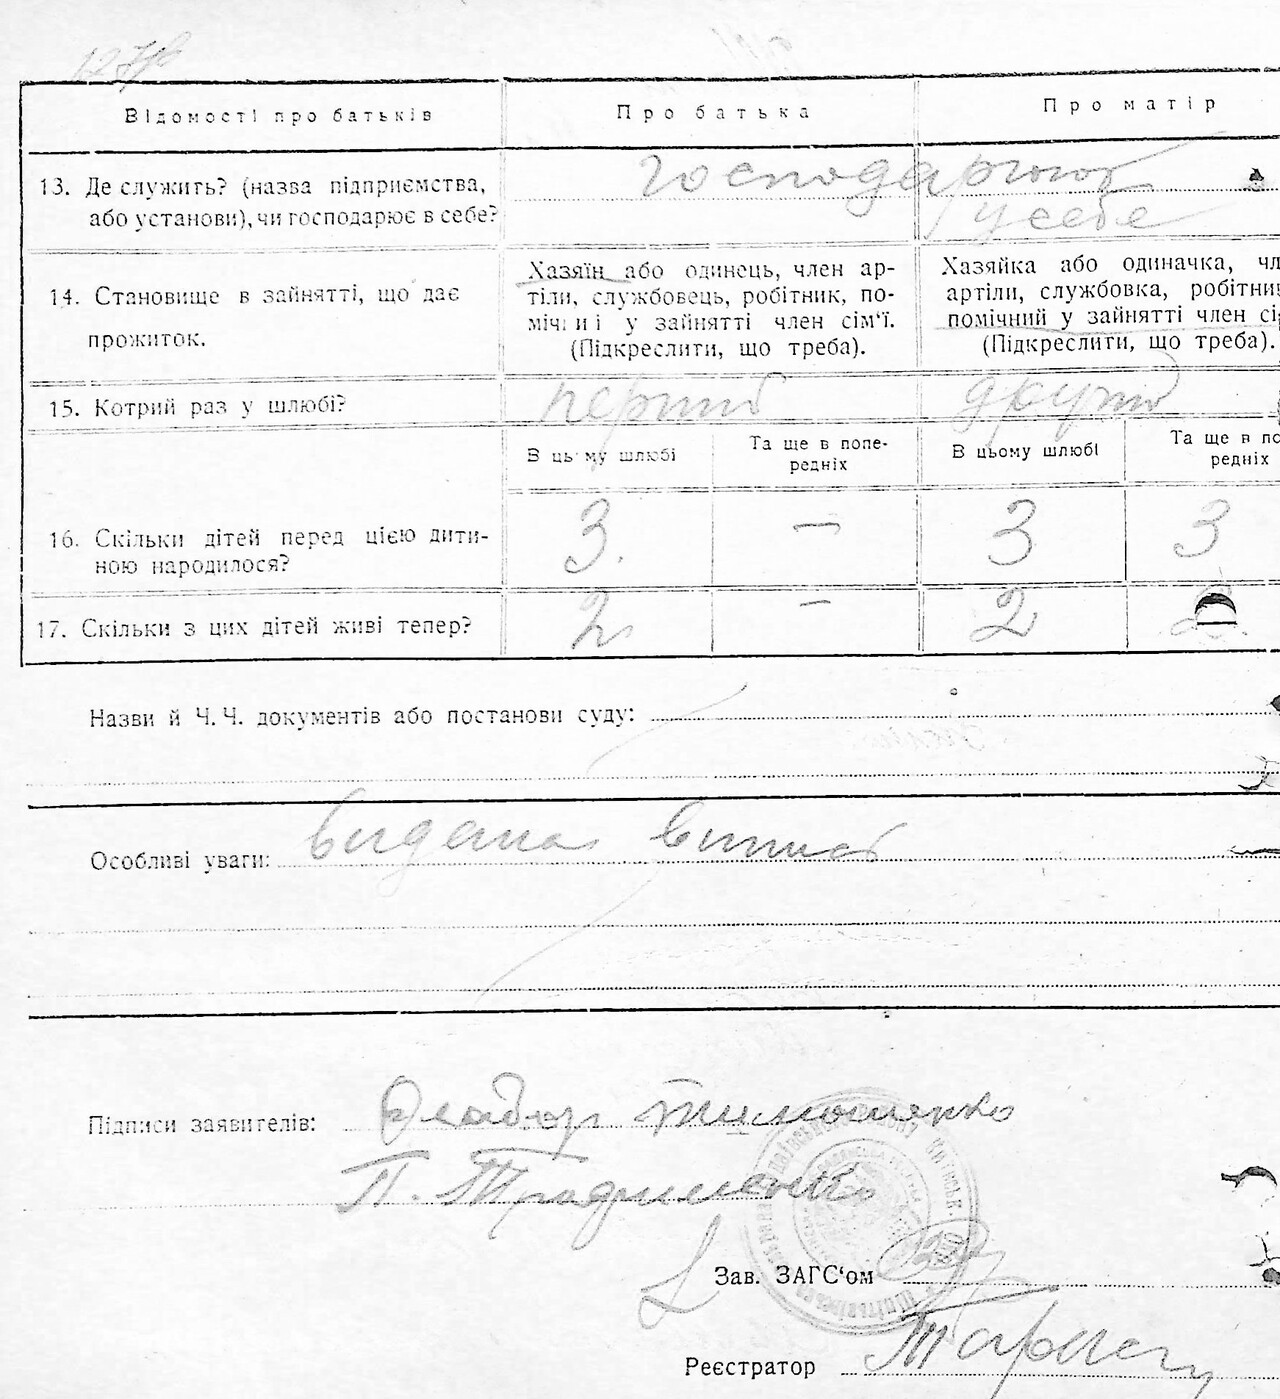 Відомості про батьків
Про батька
Про матір
13. Де служить? (назва підприємства,
або установи), чи господарює в себе?
господарюют
у себе
14. Становище в зайнятті, що дає
прожиток.
Хазяїн або одинець, член ар-
тіли, службовець, робітник, по-
мічний у зайнятті член сім'ї.
(Підкреслити, що треба).
Хазяйка або одиначка, чл
артіли, службовка, робітни
помічний у зайнятті член сі
(Підкреслити, що треба).
15. Котрий раз у шлюбі?
перший
другий
В цьому шлюбі
Та ще в попе-
редніх
В цьому шлюбі
Та ще в по
редніх
16. Скільки дітей перед цією дити-
ною народилося?
3.
—
3
3
17. Скільки з цих дітей живі тепер?
2
—
2
Назви й Ч. Ч. документів або постанови суду:
Особливі уваги:
видана
Підписи заявителів:
Тимошенко
П.
Зав. ЗАГС'ом
Реєстратор